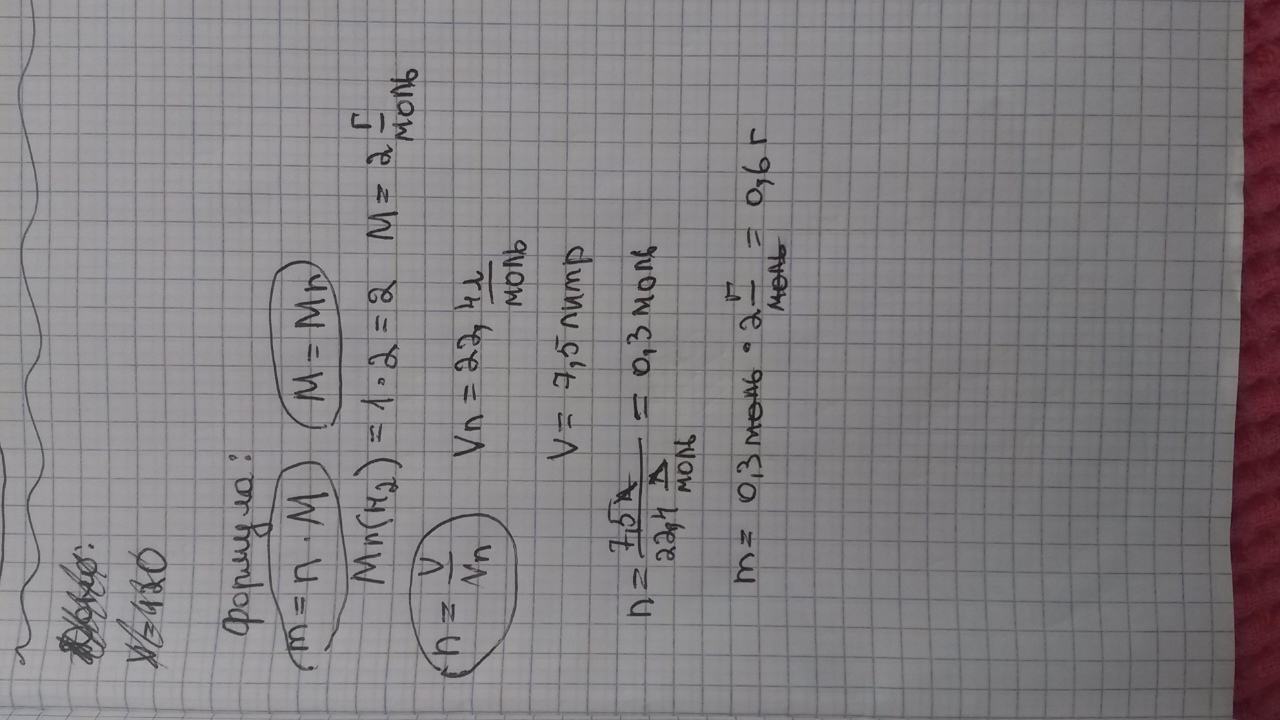 формула:
m = n · M M = Mn
Mn(H₂) = 1 · 2 = 2 M = 2 г/моль
n = V/Vn Vn = 22,4 л/моль
V = 7,5 литр
n = 7,5л / 22,4 л/моль = 0,3 моль
m = 0,3 моль · 2 г/моль = 0,6 г